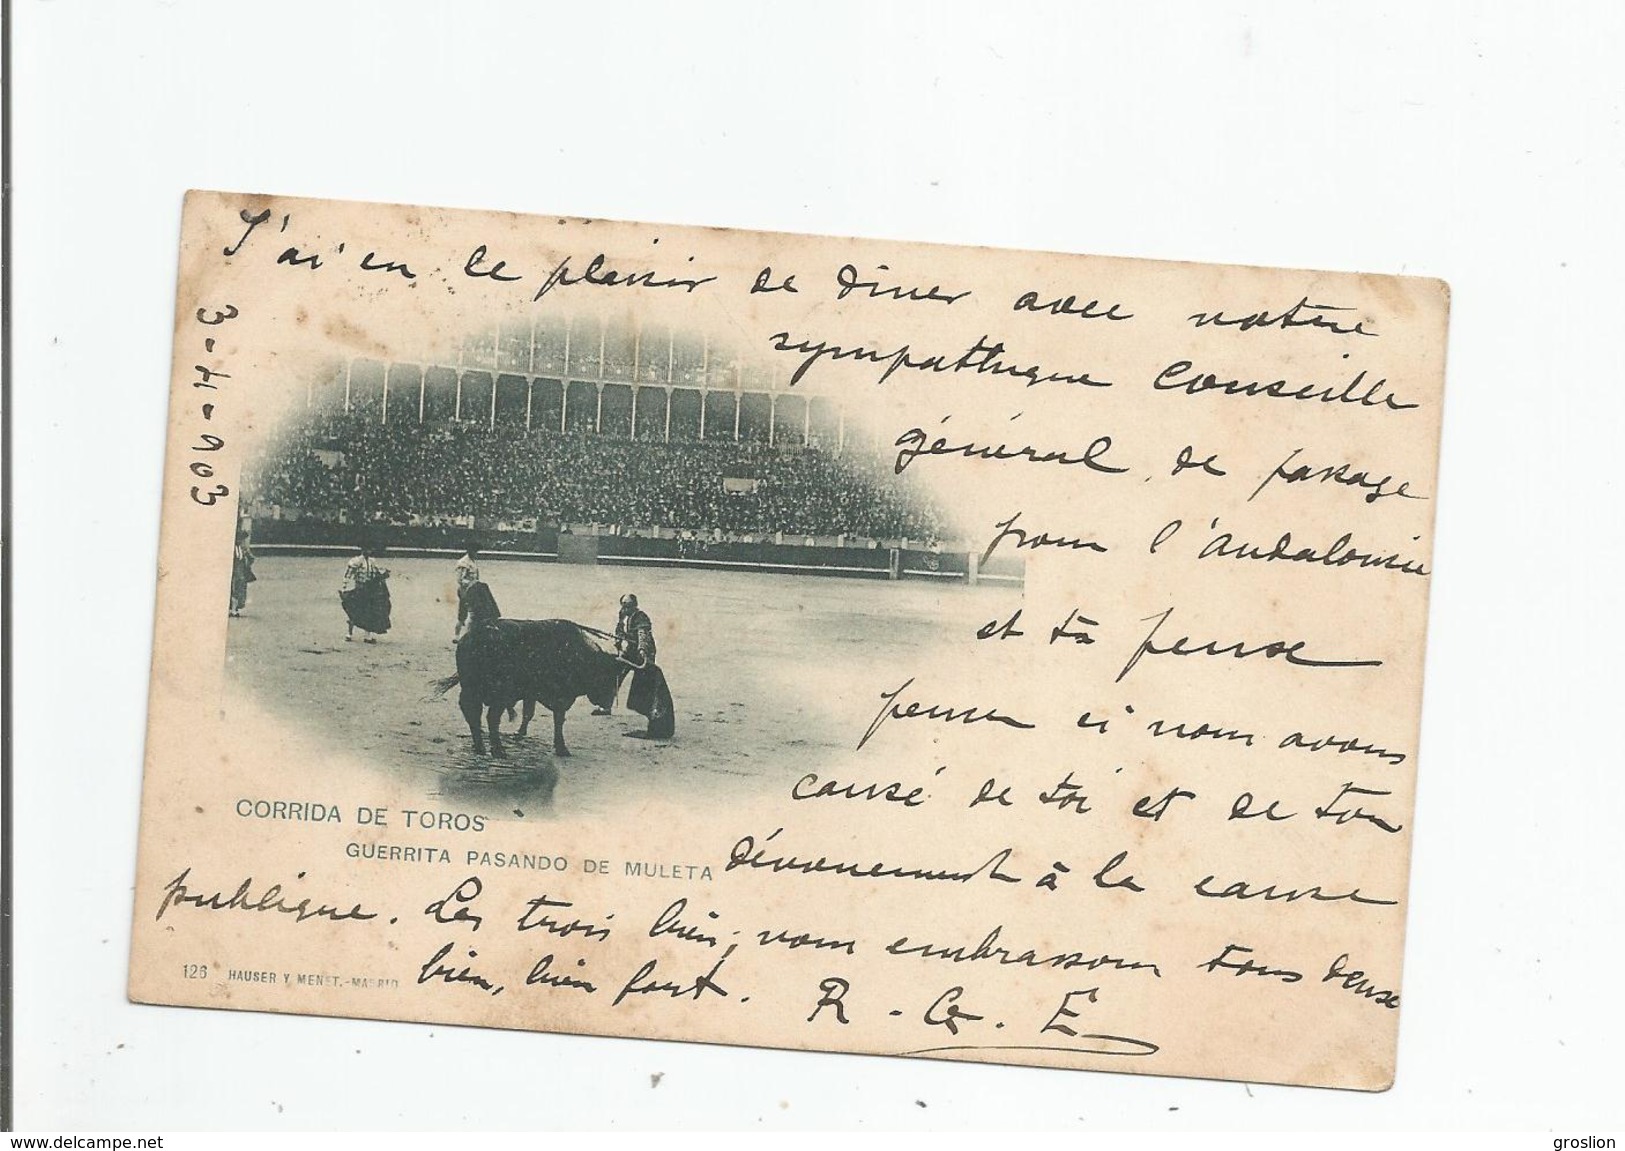 J'ai eu le plaisir de dîner avec notre
sympathique Conseille
général, de passage
pour l'Andalousie
et tu pense
penser si nous avons
causé de toi et de ton
dévouement à la cause
publique. Les trois bien, vous embrassons tous
bien, bien fort. R. G. E
3-4-903
CORRIDA DE TOROS
GUERRITA PASANDO DE MULETA
126 HAUSER Y MENET.-MADRID
www.delcampe.net
groslion